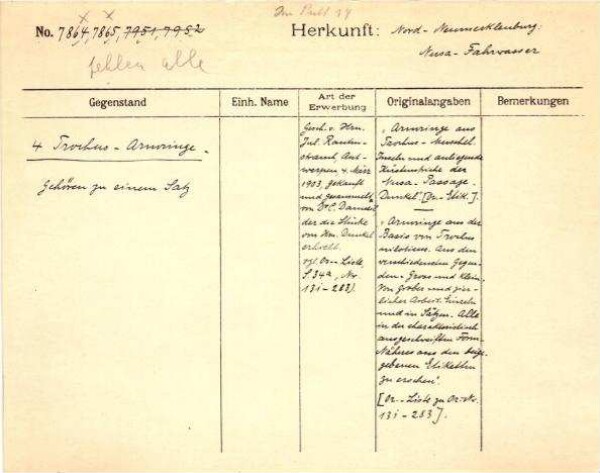 Im Pult 39
No. 7864, 7865, 7951, 7952
Herkunft: Nord-Neumecklenburg:
Nusa-Fahrwasser
fehlen alle
Gegenstand
Einh. Name
Art der
Erwerbung
Originalangaben
Bemerkungen
4 Trochus-Armringe.
gehören zu einem Satz
Gesch. v. Hrn.
Jul. Rauten-
strauch, Ant-
werpen 4. März
1903, gekauft
und gesammelt
von
der die Stücke
von Hrn. Dunkel
erhielt.
vgl. Or.-Liste,
S. 34a, No.
131-283).
"Armringe aus
Trochus-Muschel.
Inseln und anliegende
Küstenstriche der
Nusa-Passage.
Dunkel." [Or.-Etik.].
"Armringe aus der
Basis von Trochus
niloticus. Aus den
verschiedensten Gegen-
den. Gross und Klein.
Von grober und zier-
licher Arbeit. Einzeln
und in Sätzen. Alle
in der charakteristisch
ausgeschweiften Form.
Näheres aus den beige-
gebenen Etiketten
zu ersehen".
[Or.-Liste zu Or.-No.
131-283].